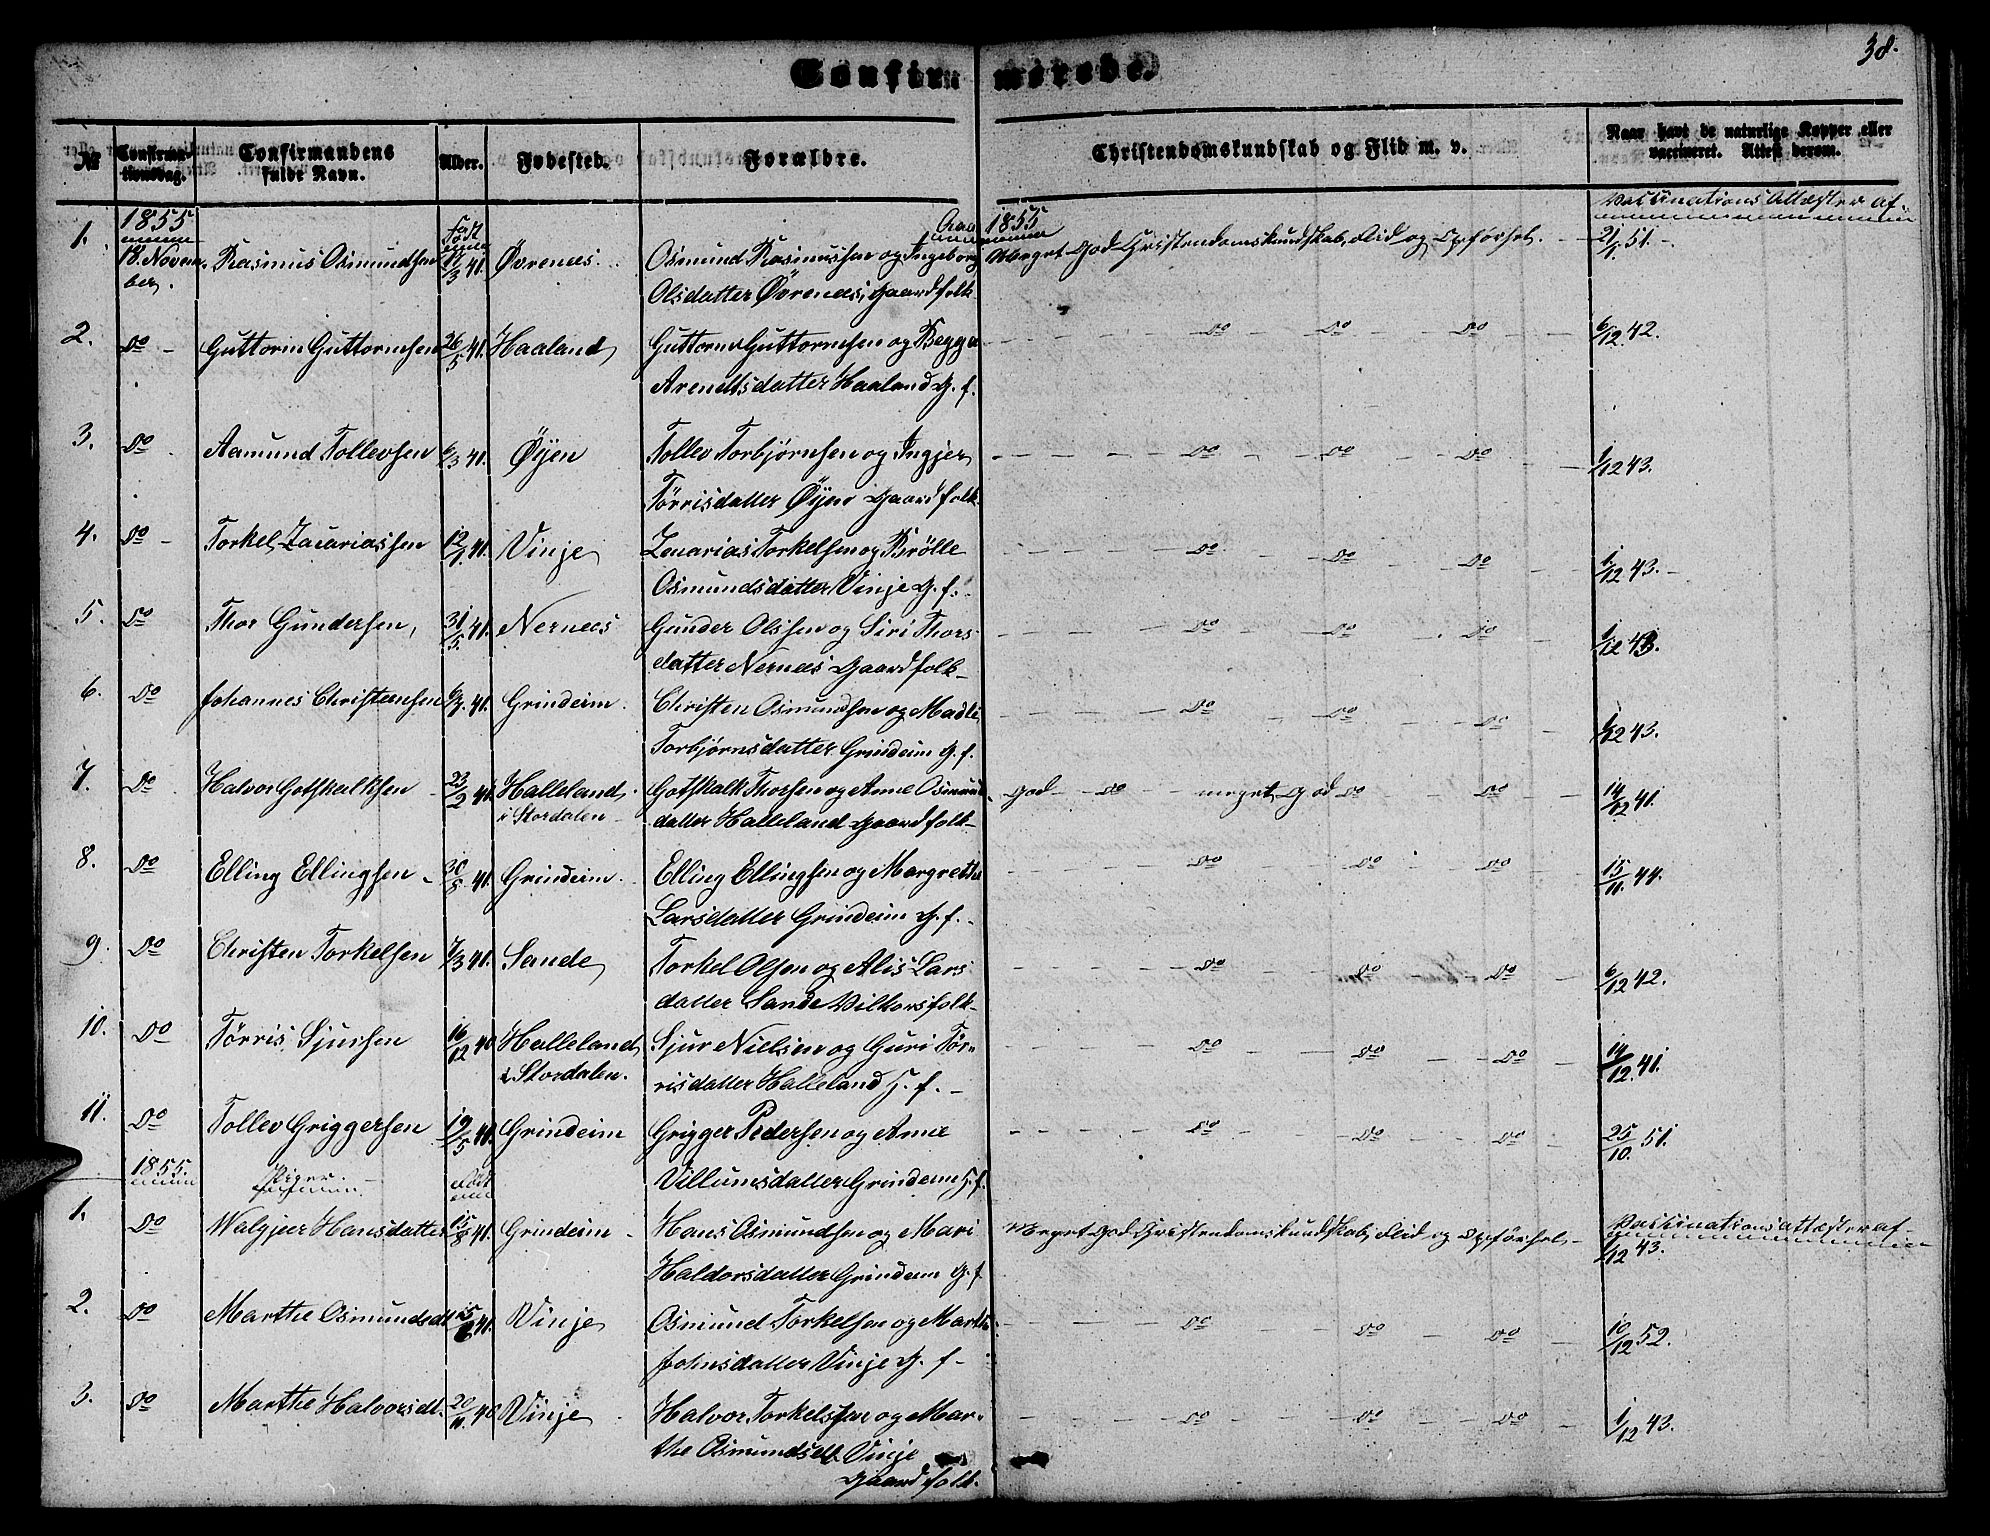 38.
Confirmerede.
№ Confirmationsdag. Confirmandens fulde Navn. Alder. Fødested. Forældre. Christendomskundskab og Flid m. v. Naar havt de naturlige Kopper eller vaccineret. Attest derom.
1855 Født Aar 1855 Vaccinations Attæster af
1. 18. Novem- Rasmus Osmundsen 12/3 41. Øvrenæs. Osmund Rasmussen og Ingeborg Meget God Christendomskundskab, Flid og Opførsel. 21/7. 51.
ber. Olsdatter Øvrenæs, Gaardfolk
2. Do Guttorm Guttormsen 26/5 41. Haaland Guttorm Guttormsen og Begga Do Do Do 6/12 42.
Arendtsdatter Haaland G. f.
3. Do Aamund Tollevsen 6/3 41. Øyen Tollev Torbjørnsen og Ingjer Do Do Do 1/12 43.
Tørrisdatter Øyen Gaardfolk
4. Do Torkel Zacariassen 12/1 41. Vinje Zacarias Torkelsen og Brølle Do Do Do 1/12 43.
Osmundsdatter Vinje G. f.
5. Do Thor Gundersen, 31/5. 41. Nernæs Gunder Olssen og Siri Thors- Do Do Do 1/12 43.
datter Nernæs Gaardfolk
6. Do Johannes Christensen 6/7. 41. Grindeim. Christen Osmundsen og Madli Do Do Do 1/12 43.
Torbjørnsdatter Grindeim G. f.
7. Do Halvor Gotskalksen 23/2 41. Halleland Gotskalk Thorsen og Anne Osmund- God Do meget God Do Do 14/12 41.
i Stordalen datter Halleland Gaardfolk
8. Do Elling Ellingsen 30/8 41. Grindeim. Elling Ellingsen og Margrethe Do Do Do 15/11. 44.
Larsdatter Grindeim G. f.
9. Do Christen Torkelsen 7/3 41. Sande Torkel Olsen og Alis Lars Do Do Do 6/12 42.
datter Sande Vilkorsfolk
10. Do Tørris Sjursen 16/12 40 Halleland Sjur Nielsen og Guri Tør- Do Do Do 14/12. 41.
i Stordalen. risdatter Halleland H. f.
11. Do Tollev Griggersen 19/5 41. Grindeim Grigger Pedersen og Anne Do Do Do 25/10. 51.
1855. Piger. Født Villumsdatter Grindeim H. f.
1. Do Walgjer Hansdatter 15/8 41. Grindeim Hans Osmundsen og Mari Meget God Christendomskundskab, Flid og Opførsel Vaccinationsattæster af
Haldorsdatter Grindeim G. f. 1/12 43.
2. Do Marthe Osmundsdt 41. Vinje Osmund Torkelsen og Marthe Do Do Do 10/12 52.
Johnsdatter Vinje G. f
3. Do Marthe Halvorsdt. 20/11. 40 Vinje Halvor Torkelsen og Mar- Do Do Do 1/12 43.
the Osmundsdt. Vinje
Gaardfolk.